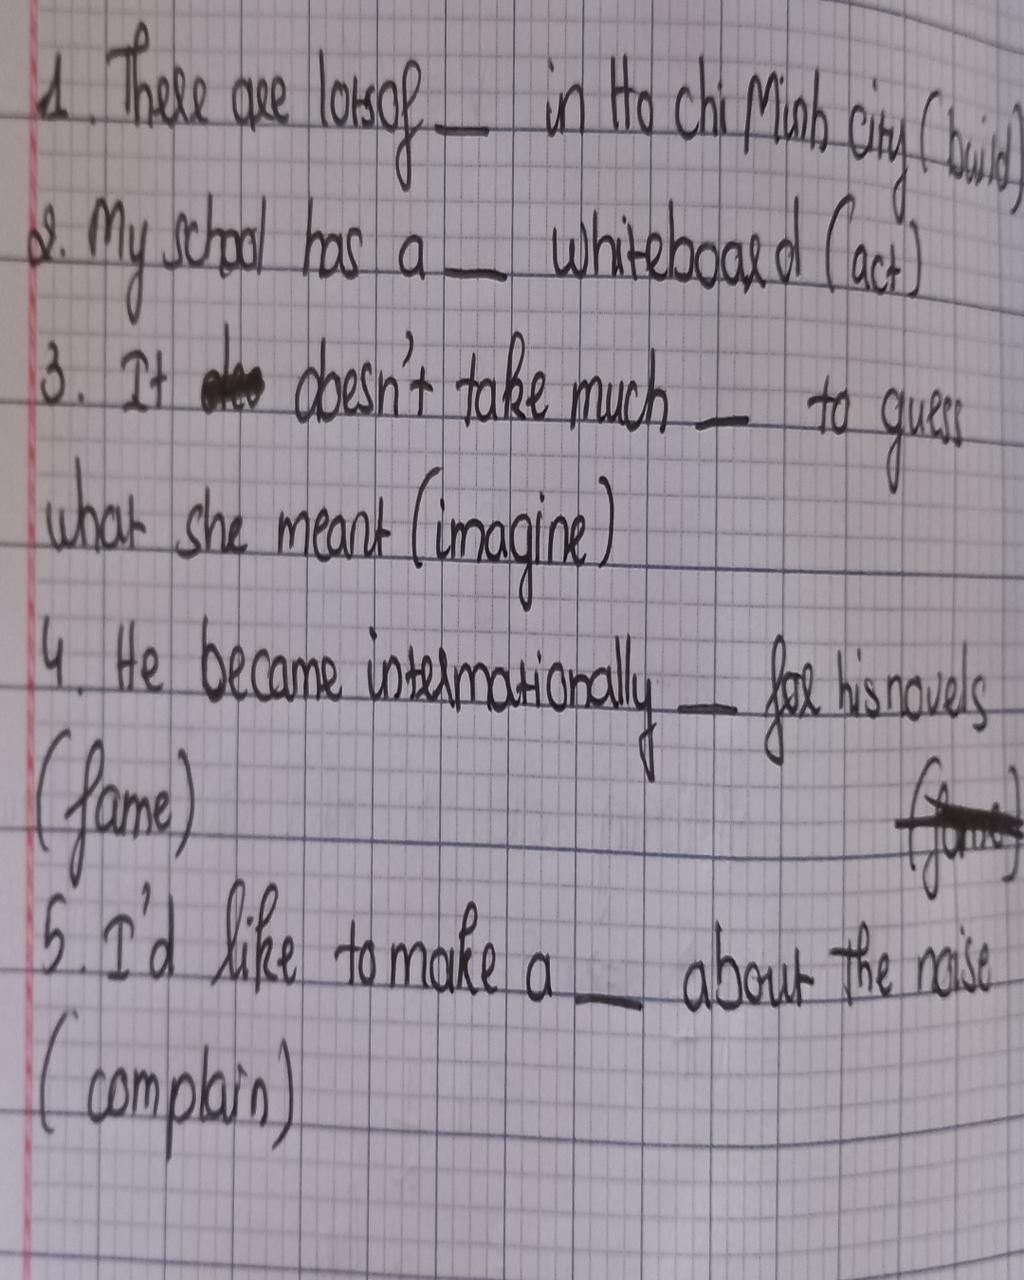 1. There are lots of __ in Ho Chi Minh city (build)
2. My school has a __ whiteboard (act)
3. It doesn't take much __ to guess
what she meant (imagine)
4. He became internationally __ for his novels
(fame)
5. I'd like to make a __ about the noise
(complain)